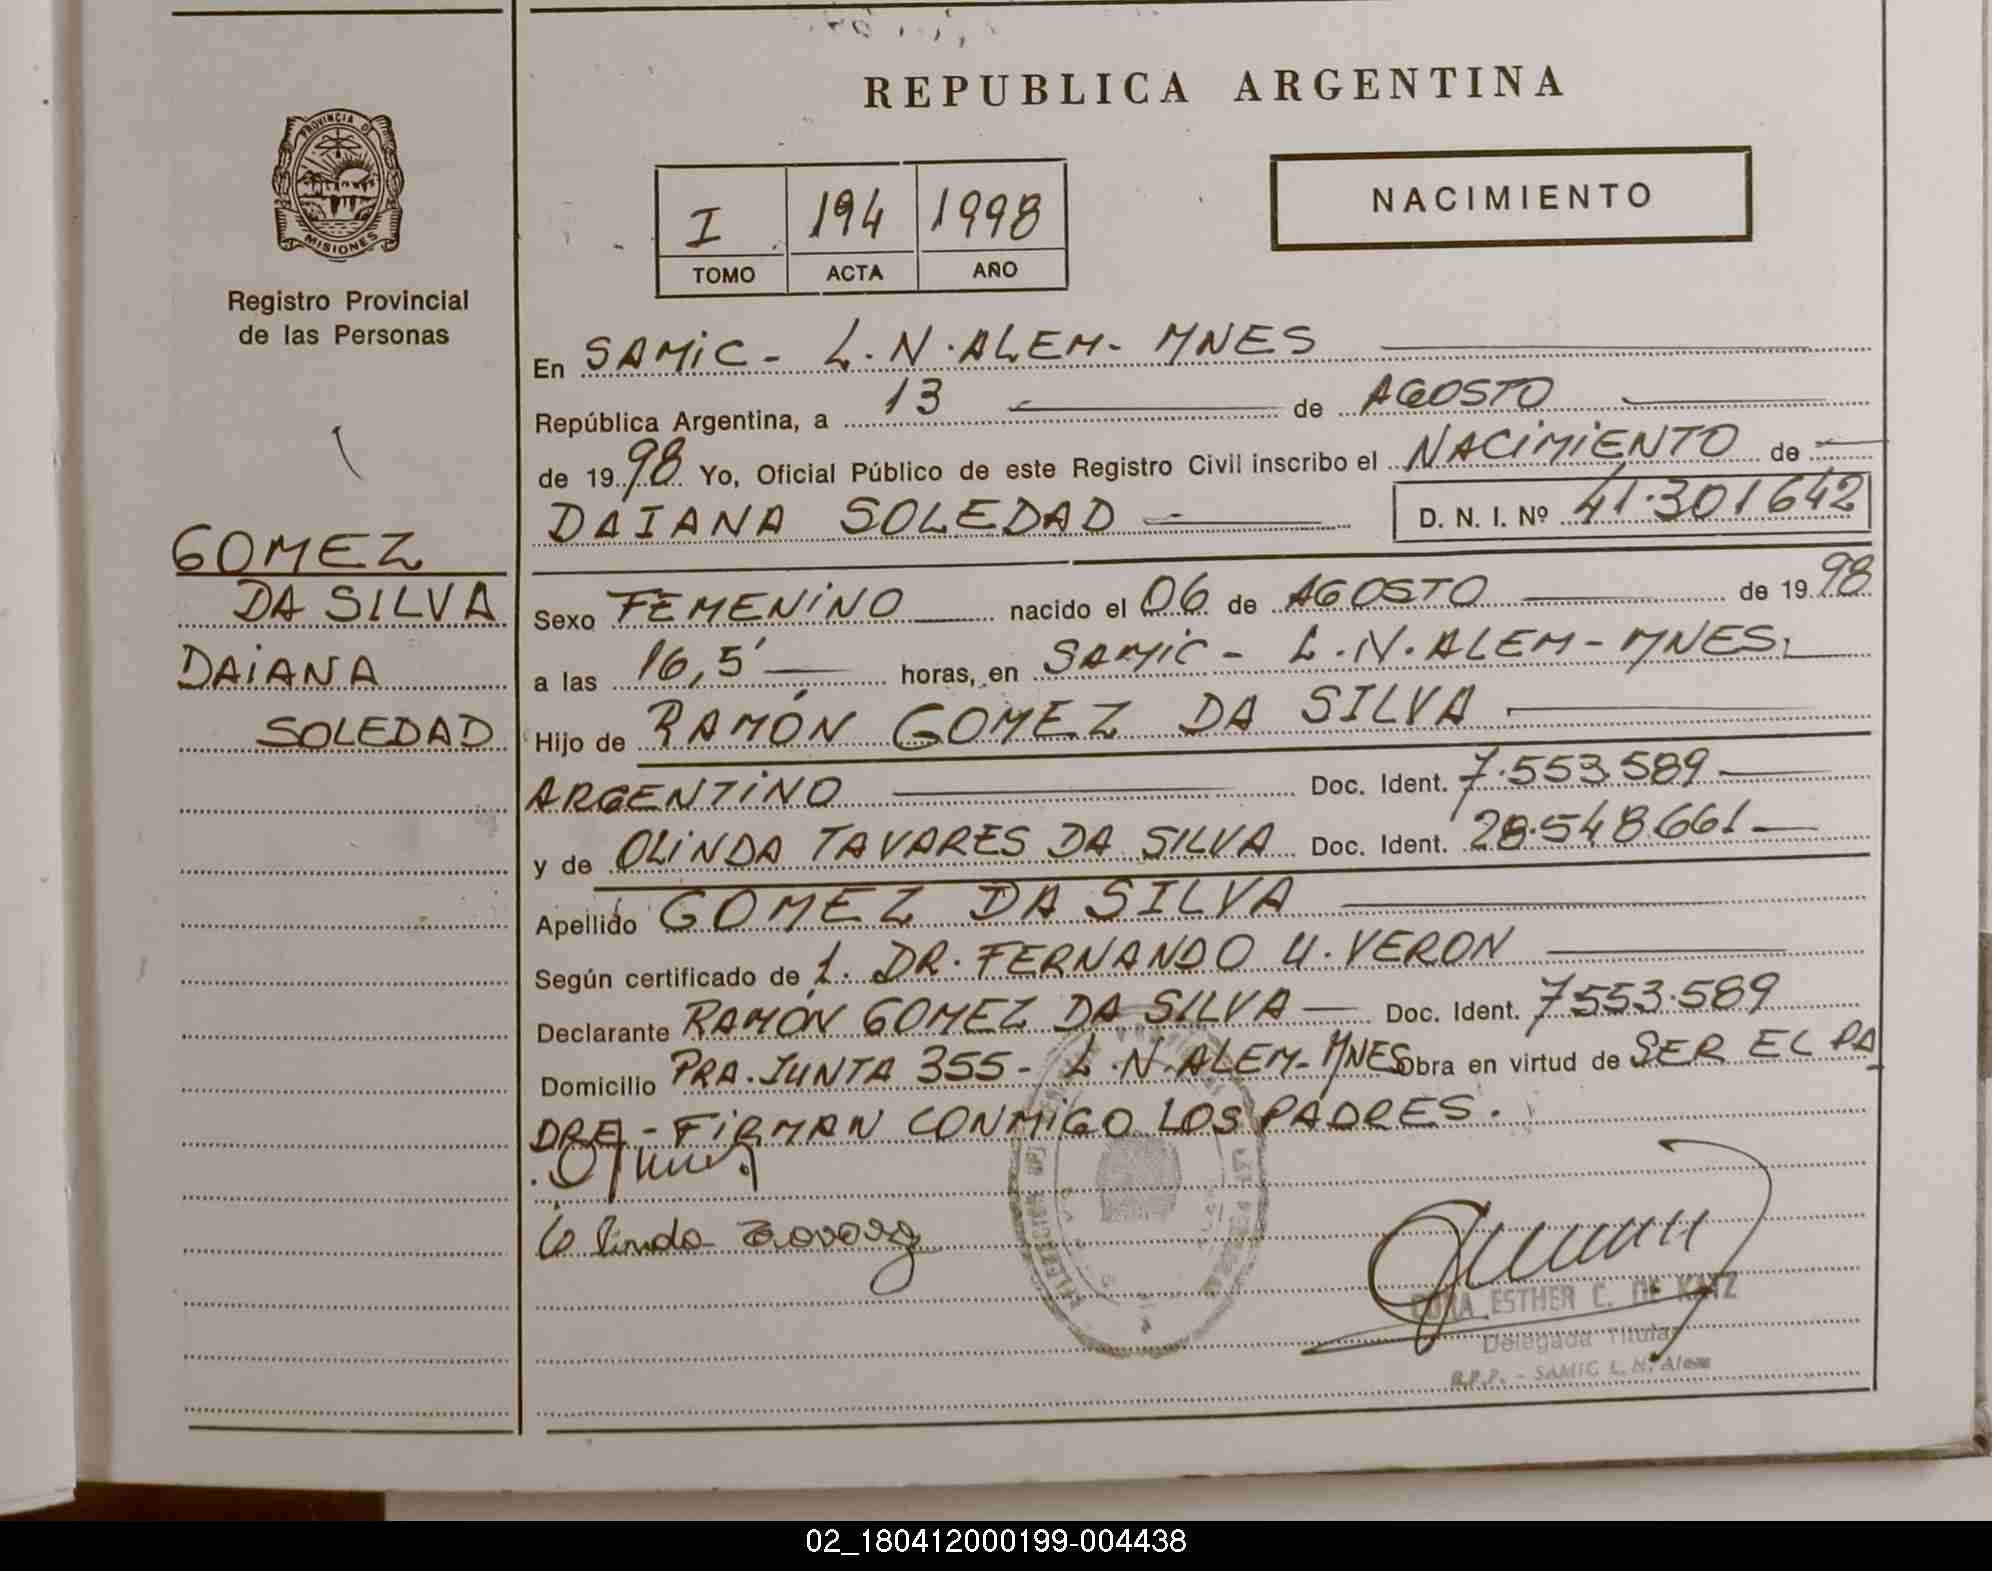 REPUBLICA ARGENTINA
PROVINCIA DE
MISIONES
Registro Provincial
de las Personas
I 194 1998
TOMO ACTA AÑO
NACIMIENTO
GOMEZ
DA SILVA
DAIANA
SOLEDAD
En SAMIC - L.N.ALEM - MNES
República Argentina, a 13 de AGOSTO
de 1998 Yo, Oficial Público de este Registro Civil inscribo el NACIMIENTO de
DAIANA SOLEDAD D. N. I. Nº 41.301642
Sexo FEMENINO nacido el 06 de AGOSTO de 1998
a las 16,5' horas, en SAMIC - L.N.ALEM - MNES.
Hijo de RAMÓN GOMEZ DA SILVA
ARGENTINO Doc. Ident. 7.553.589
y de OLINDA TAVARES DA SILVA Doc. Ident. 28.548.661
Apellido GOMEZ DA SILVA
Según certificado de L. DR. FERNANDO U. VERON
Declarante RAMÓN GOMEZ DA SILVA Doc. Ident. 7553.589
Domicilio PRA. JUNTA 355 - L.N.ALEM - MNES Obra en virtud de SER EL PA
DRE - FIRMAN CONMIGO LOS PADRES.
ESTHER C. DE KATZ
Delegada Titular
R.P.P. - SAMIC L. N. Alem
02_180412000199-004438